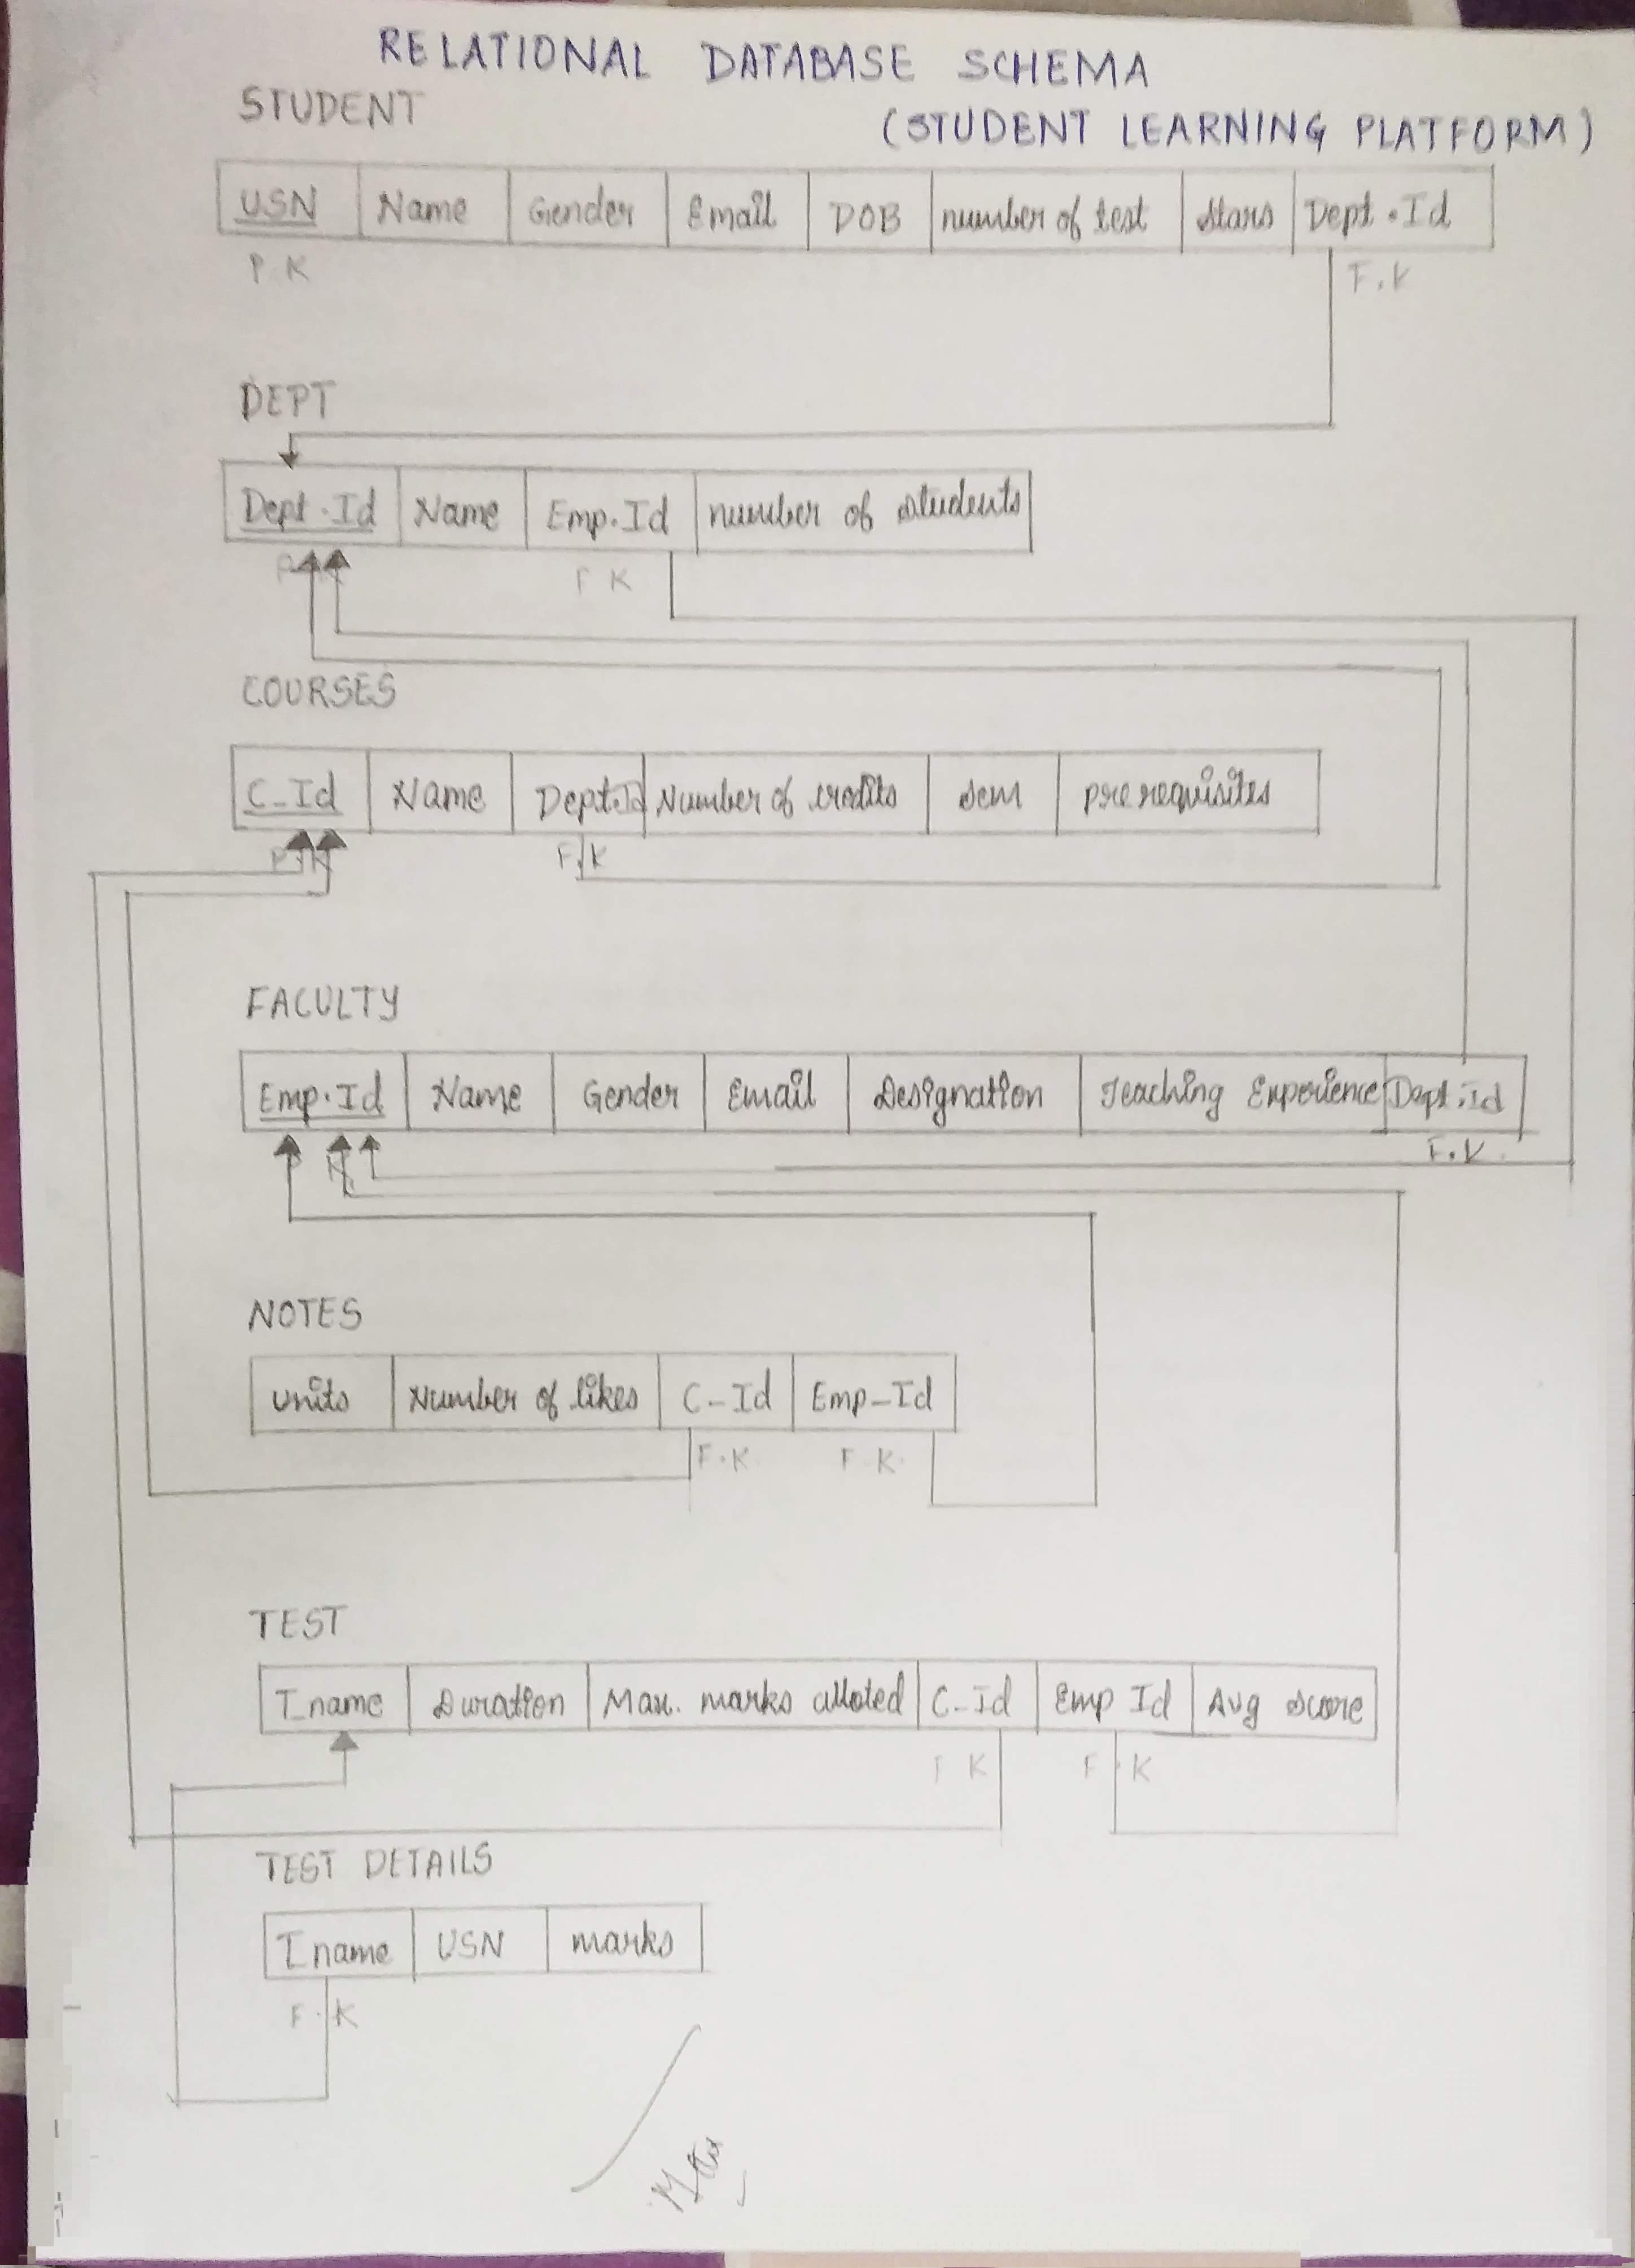 RELATIONAL DATABASE SCHEMA
STUDENT
(STUDENT LEARNING PLATFORM)
USN Name Gender Email DOB number of test Stars Dept.Id
P K F.K
DEPT
Dept.Id Name Emp.Id number of students
F K
COURSES
C_Id Name Dept.Id Number of credits sem prerequisites
P.K F.K
FACULTY
Emp.Id Name Gender Email Designation Teaching Experience Dept.id
P K F.K.
NOTES
units Number of likes C-Id Emp-Id
F.K F K.
TEST
T_name Duration Max. marks alloted C-Id Emp Id Avg score
F K F.K
TEST DETAILS
T_name USN marks
F.K